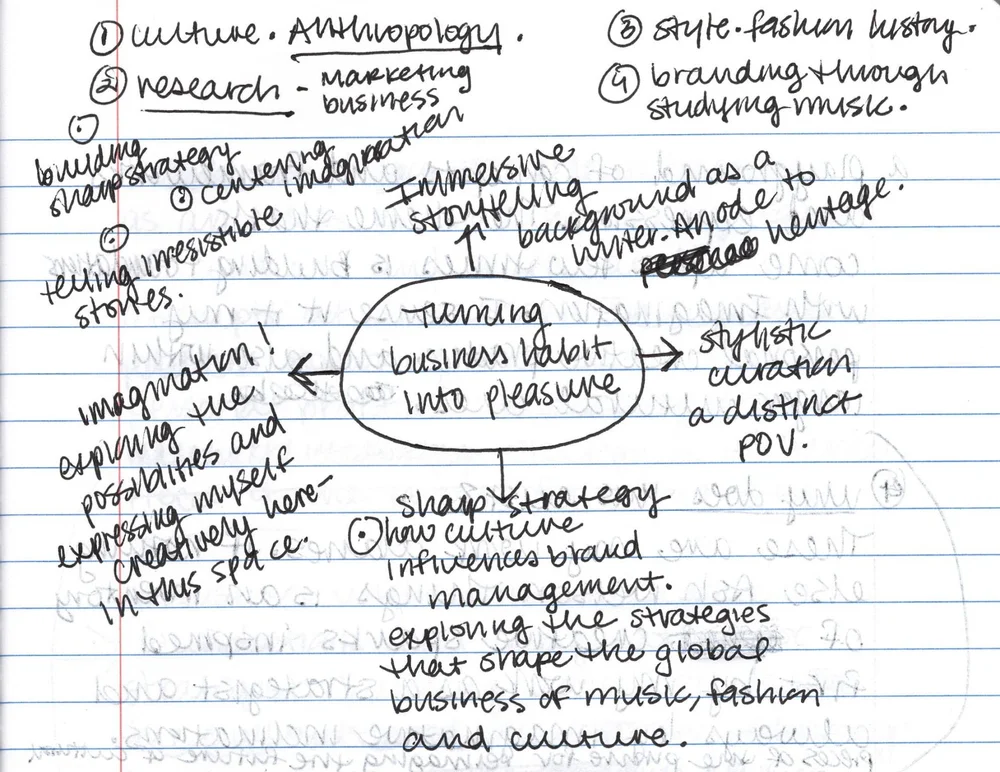 ① culture. Anthropology.
② research - marketing
business
③ style. fashion history.
④ branding through
studying music.
building
sharp strategy
centering
imagination
telling irresistible
stories.
Immersive
storytelling
background as a
writer. An ode to
heritage.
turning
business habit
into pleasure
stylistic
curation
a distinct
POV.
imagination!
exploring the
possibilities and
expressing myself
creatively here-
in this space.
sharp strategy
how culture
influences brand
management.
exploring the strategies
that shape the global
business of music, fashion
and culture.